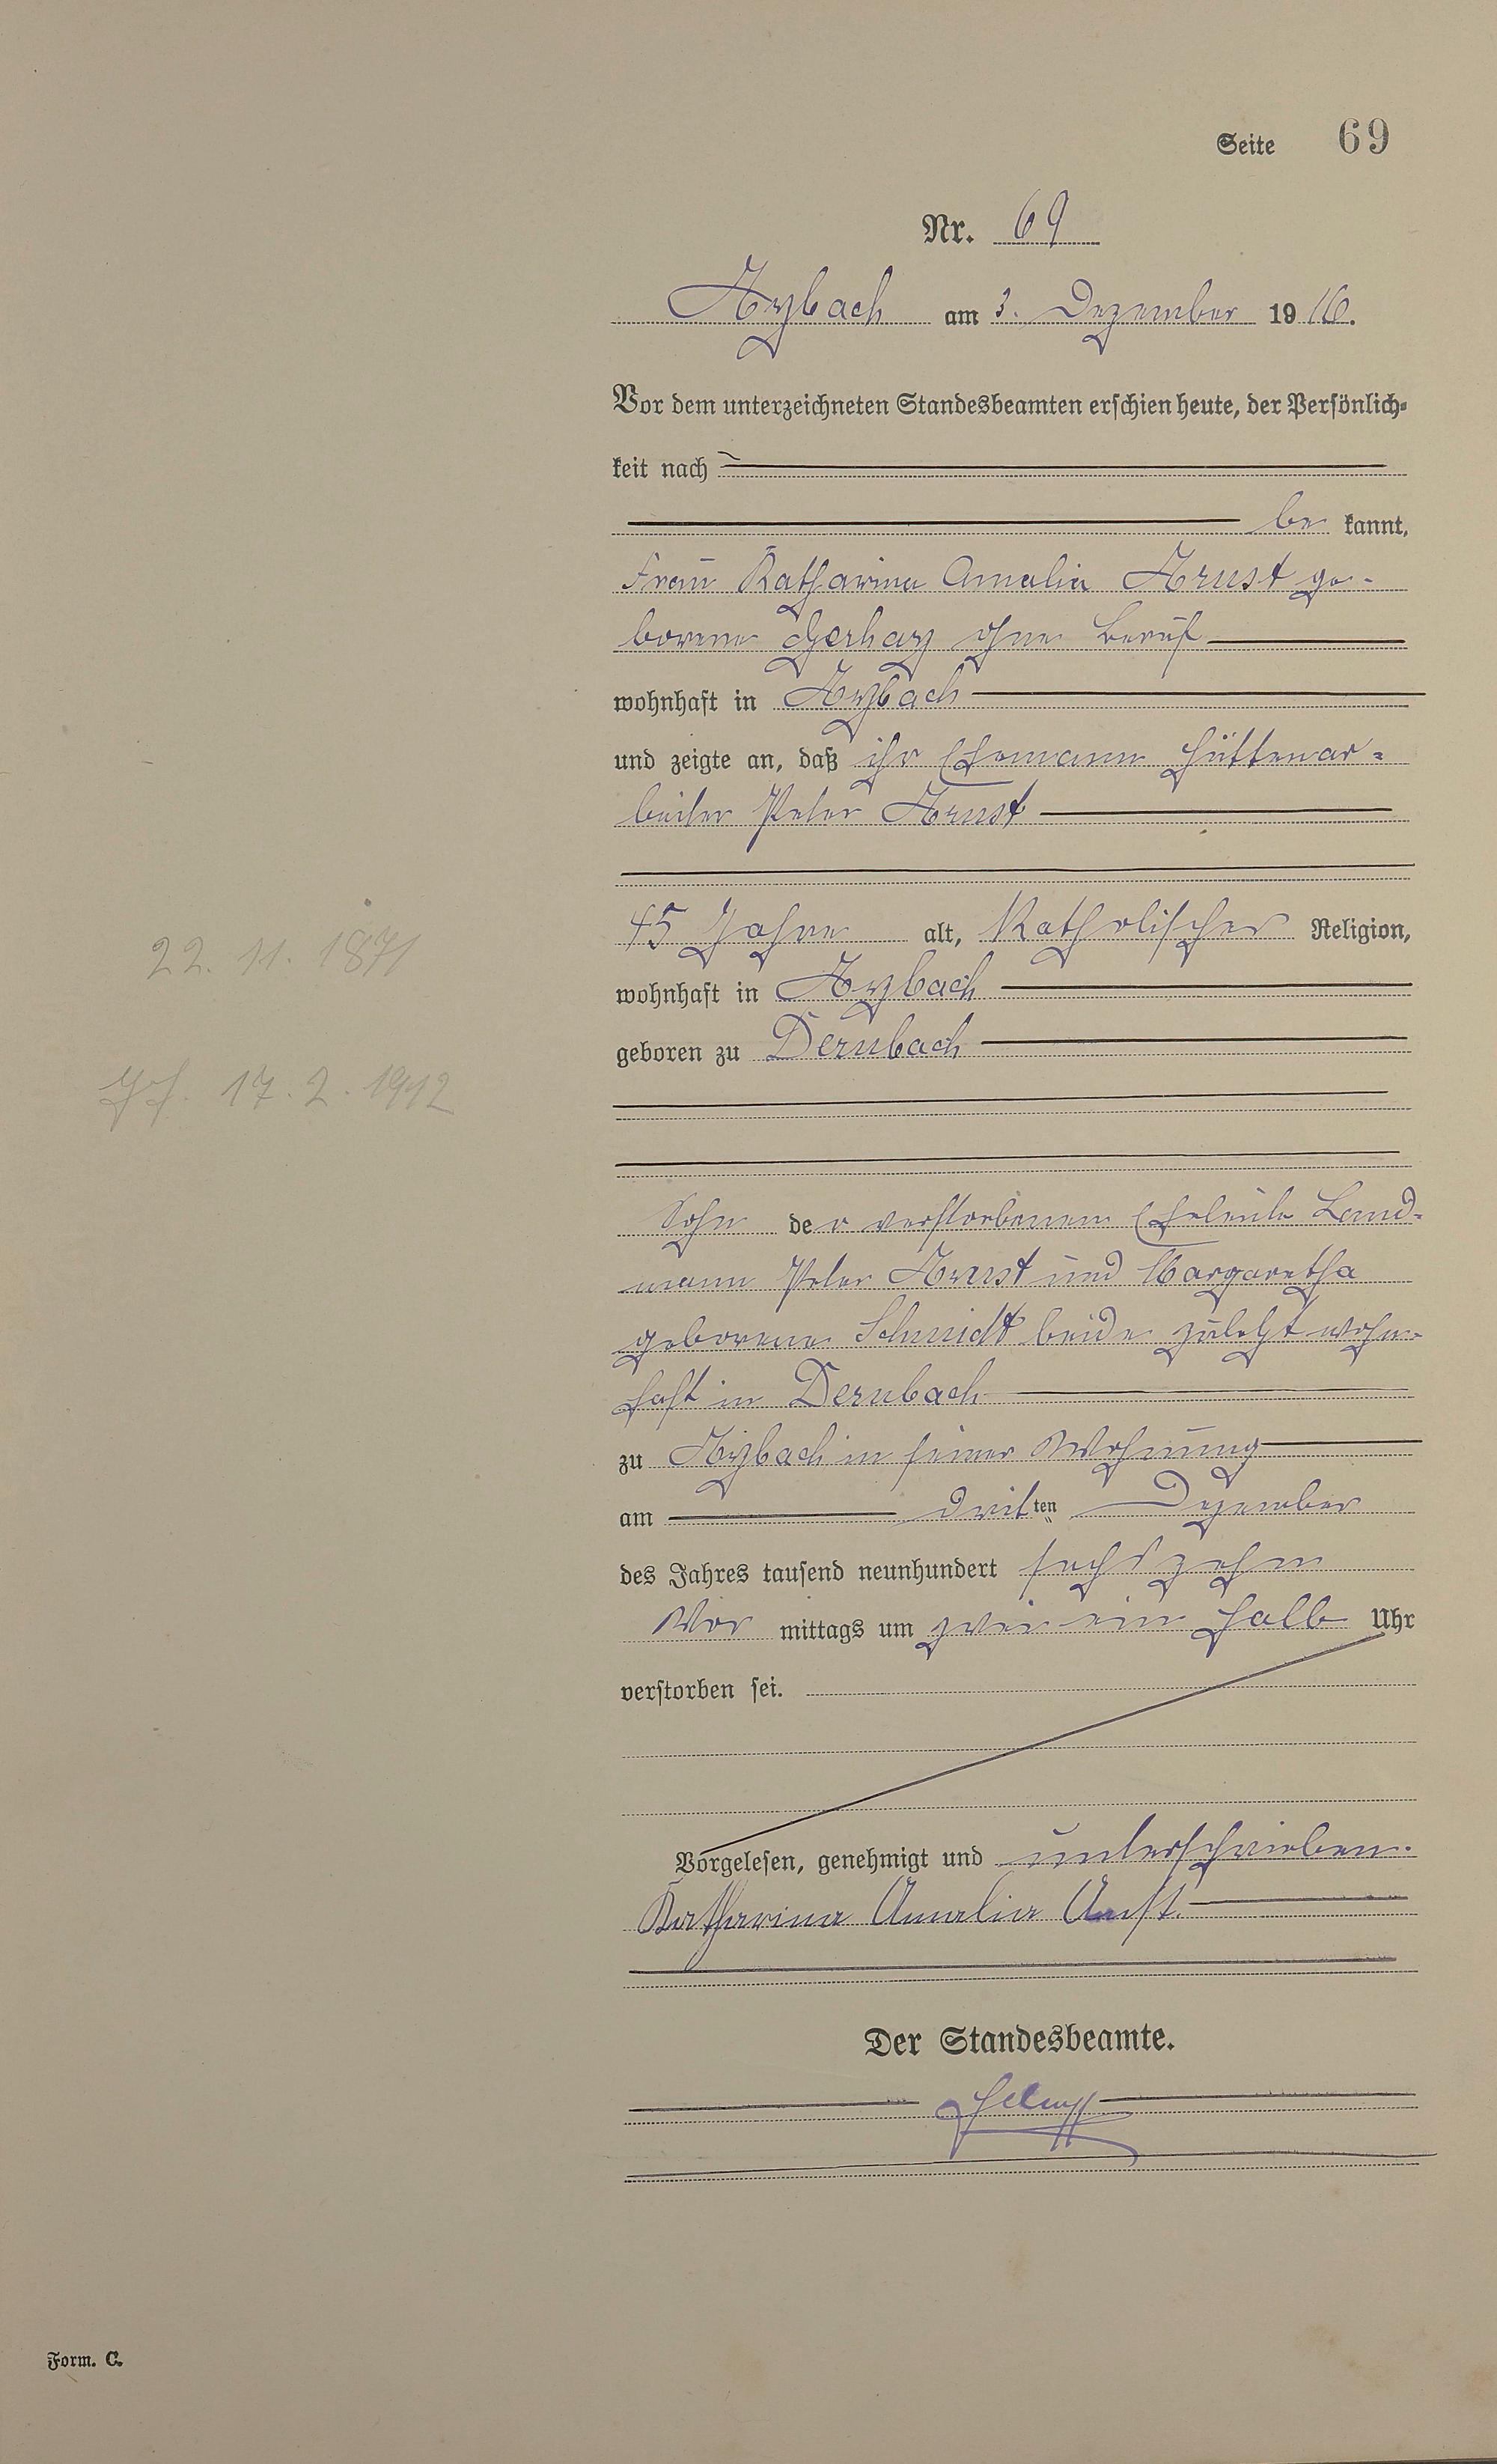 Seite 69
Nr. 69
Arzbach am 3. Dezember 1916.
Vor dem unterzeichneten Standesbeamten erschien heute, der Persönlich-
keit nach
be kannt,
Frau Katharina Amalia Arnst ge-
borene Gerharz ohne Beruf
wohnhaft in Arzbach
und zeigte an, daß ihr Ehemann Hüttenar-
beiter Peter Arnst
45 Jahre alt, Katholischer Religion,
22. 11. 1871
wohnhaft in Arzbach
geboren zu Dernbach
17. 2. 1912
Sohn der verstorbenen Eheleute Land-
mann Peter Arnst und Margaretha
geborene Schmidt beide zuletzt wohn-
haft in Dernbach
zu Arzbach in seiner Wohnung
am dritten Dezember
des Jahres tausend neunhundert sechszehn
Vor mittags um zwei ein halb Uhr
verstorben sei.
Vorgelesen, genehmigt und unterschrieben.
Katharina Amalia Arnst.
Der Standesbeamte.
Form. C.